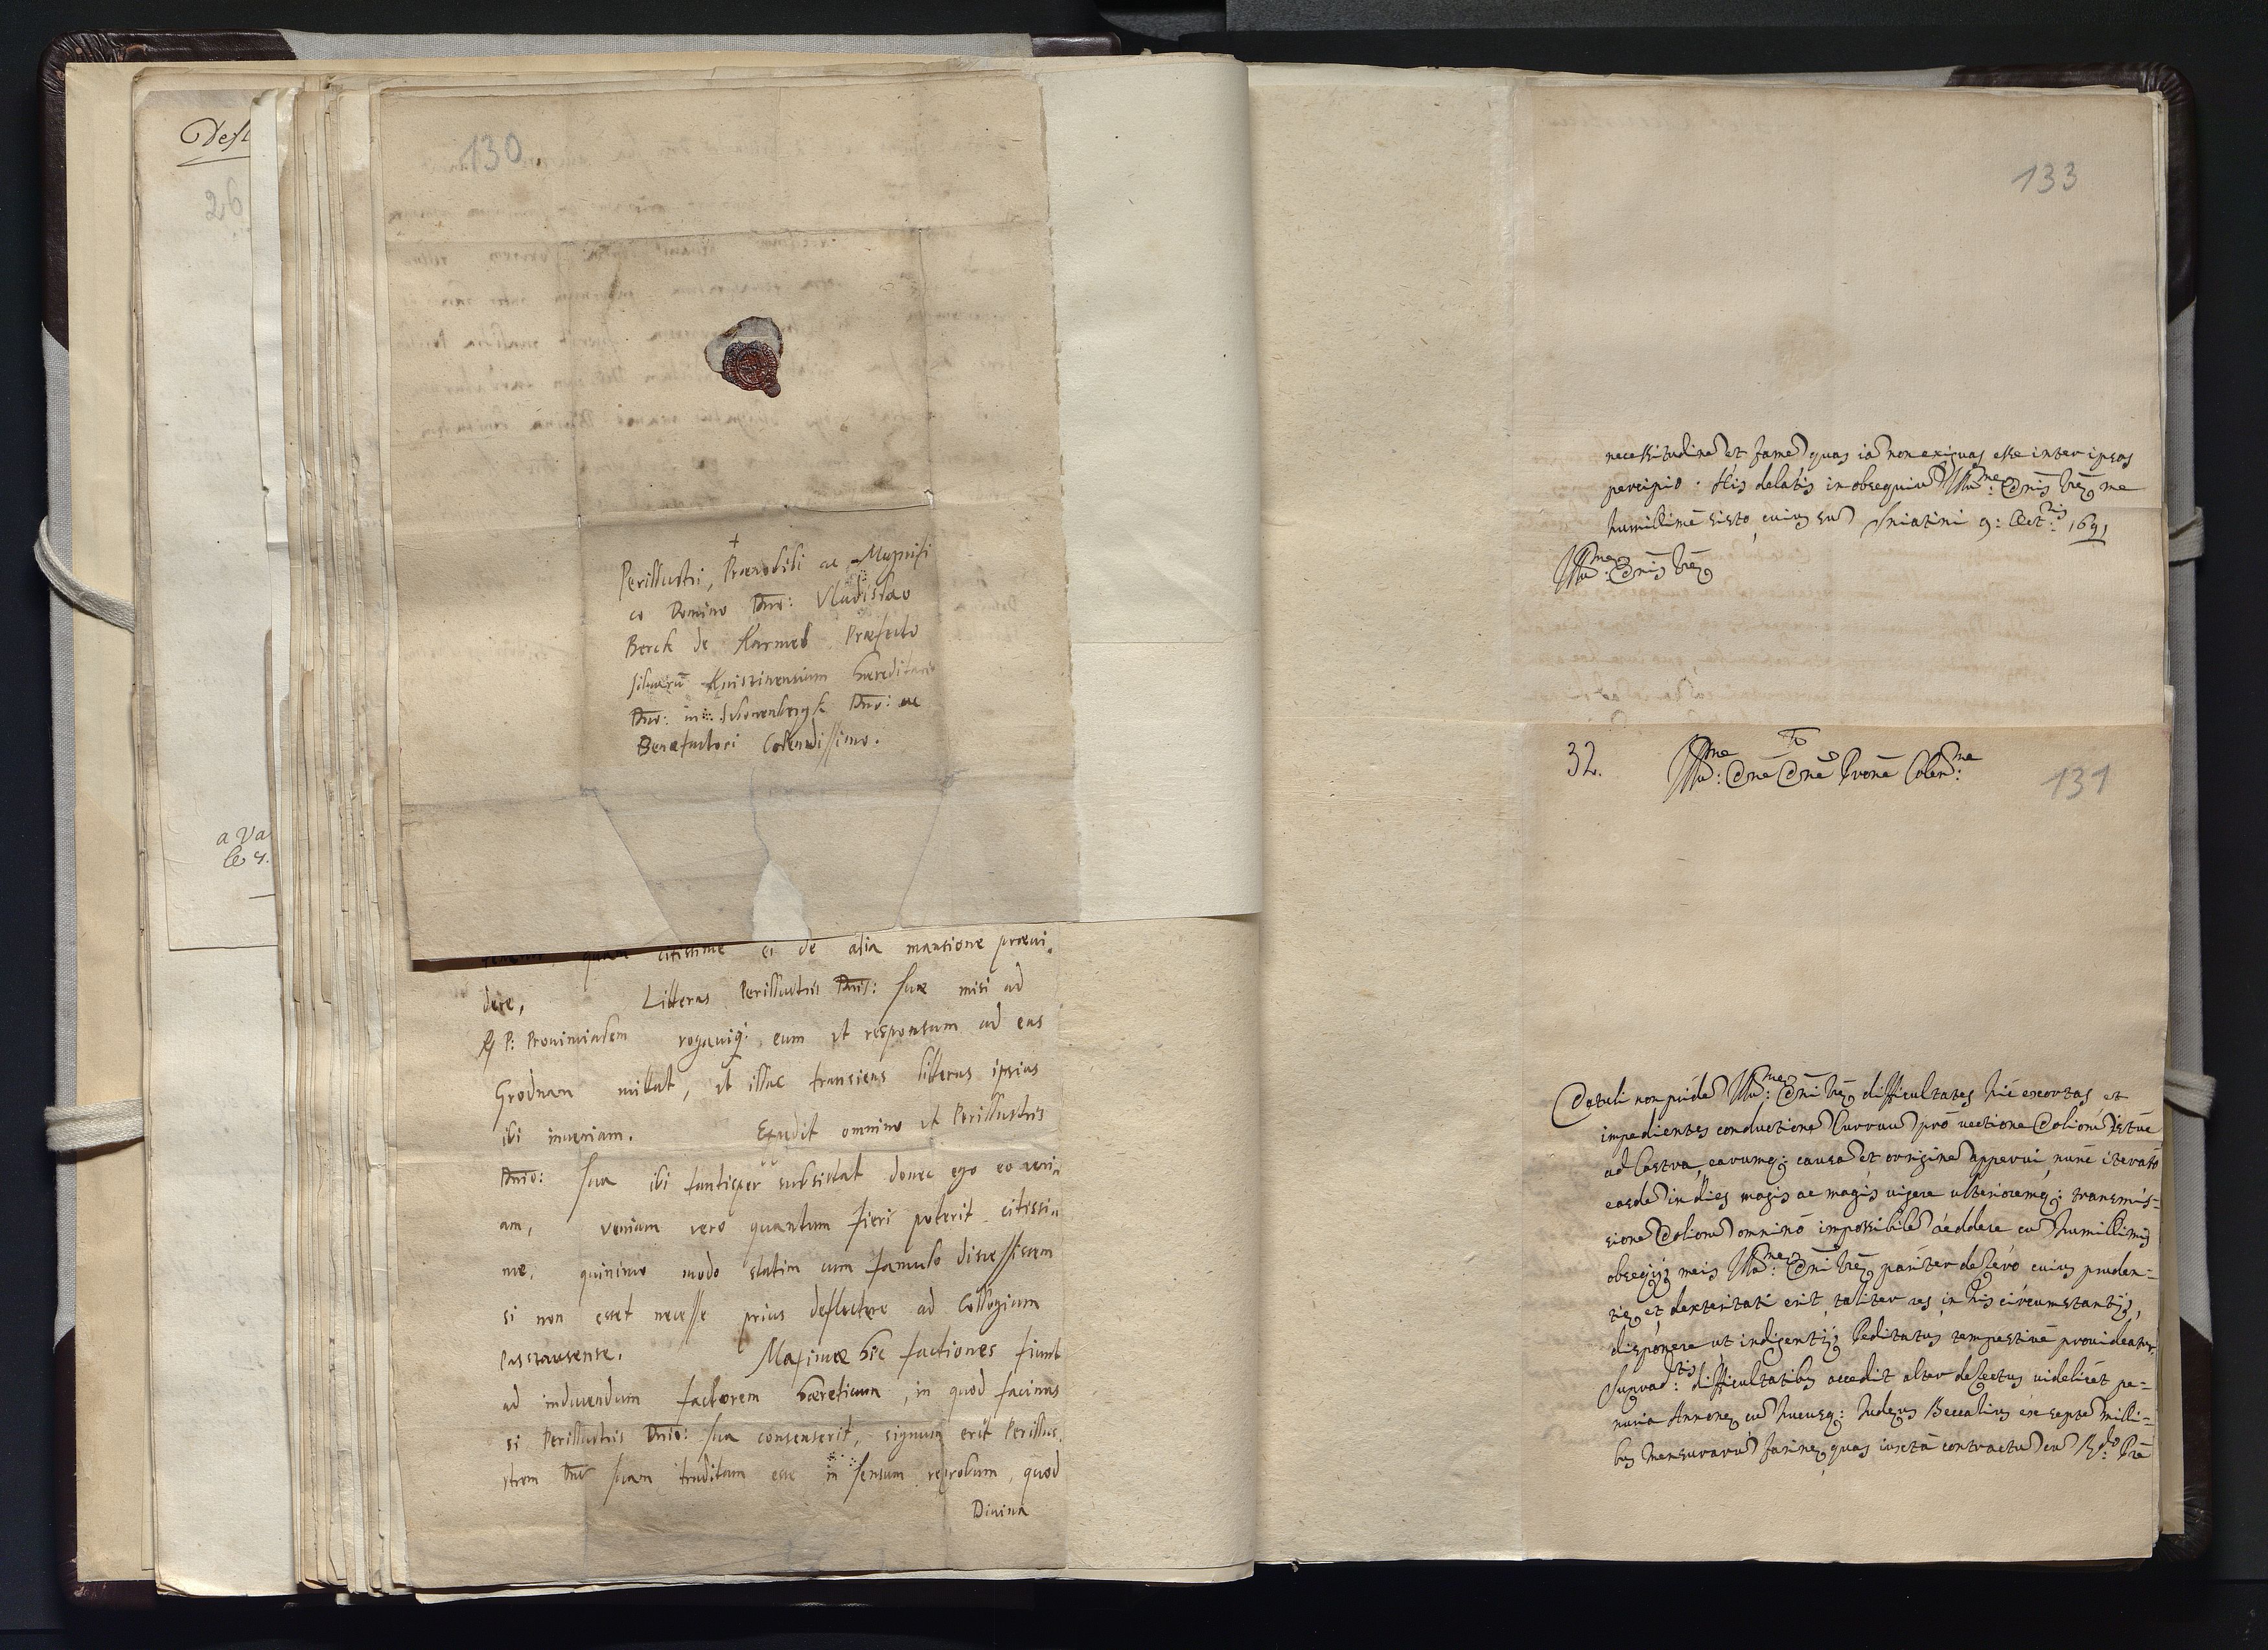 Desi
26
a Va
130.
+
Perillustri, Prænobili ac Magnifi
co Domino Dno: Vladislao
Berck de Karmel Præfecto
silvarū hæreditario
Dno: in Schonenbergk Dno: ac
Benefactori Colendissimo.
quam citissime ei de alia mansione prævi„
dere, Litteras Perillustris Dnis: suæ misi ad
R P: Provincialem rogaviq: eum ut responsum ad eas
Grodnam mittat, ut illac transiens litteras ipsius
ibi inveniam. Expedit omnino ut Perillustris
Dnio: sua ibi tantisper subsistat donec ego eo veni„
am, veniam vero quantum fieri poterit citissi„
me, quinimo modo statim cum famulo discessissem
si non esset necesse prius deflectere ad Collegium
Maximæ hic factiones fiunt
ad inducendum factorem hæreticum, in quod facinus
si Perillustris Dnio: sua consenserit, signum erit Perillus„
strem Dnē suam traditam esse in sensum reprobum, quod
Divina
133
necessitudinē et famē quas iā non exiguas esse inter ipsos
percipio. His delatis in obsequiū Illmæ: Dnis Vræ me
humillimè sisto, cuius sū Sniatini 9: Octris: 1691
Illme: Dnis Vræ
32.
Illme: Dne Dne Prone Colenme:
131
Detuli non pridē Illmæ: Dni Vræ difficultates hic exortas et
impedientes conductionē Curruū prò vectione Doliorū istuc
ad Castra, earumq: causā et originē apperui, nunc iteratò
easdē in dies magis ac magis vigere ulterioremq: transmis=
sionē Doliorū omninò impossibilē reddere cū humillimis
obsequijs meis Illmæ: Dni Vræ pariter defero cuius pruden=
tiæ et dexteritati erit taliter res in his circumstantijs,
disponere ut indigentijs Peditatus tempestivè provideatur.
Supradtis: difficultatibus accedit alter defectus videlicet pe=
nuria Annonæ cū hucusq: Judæus Beccalius ex septē milli=
bus mensurarū farinæ quas iuxtà contractū cū Rdo: Pre